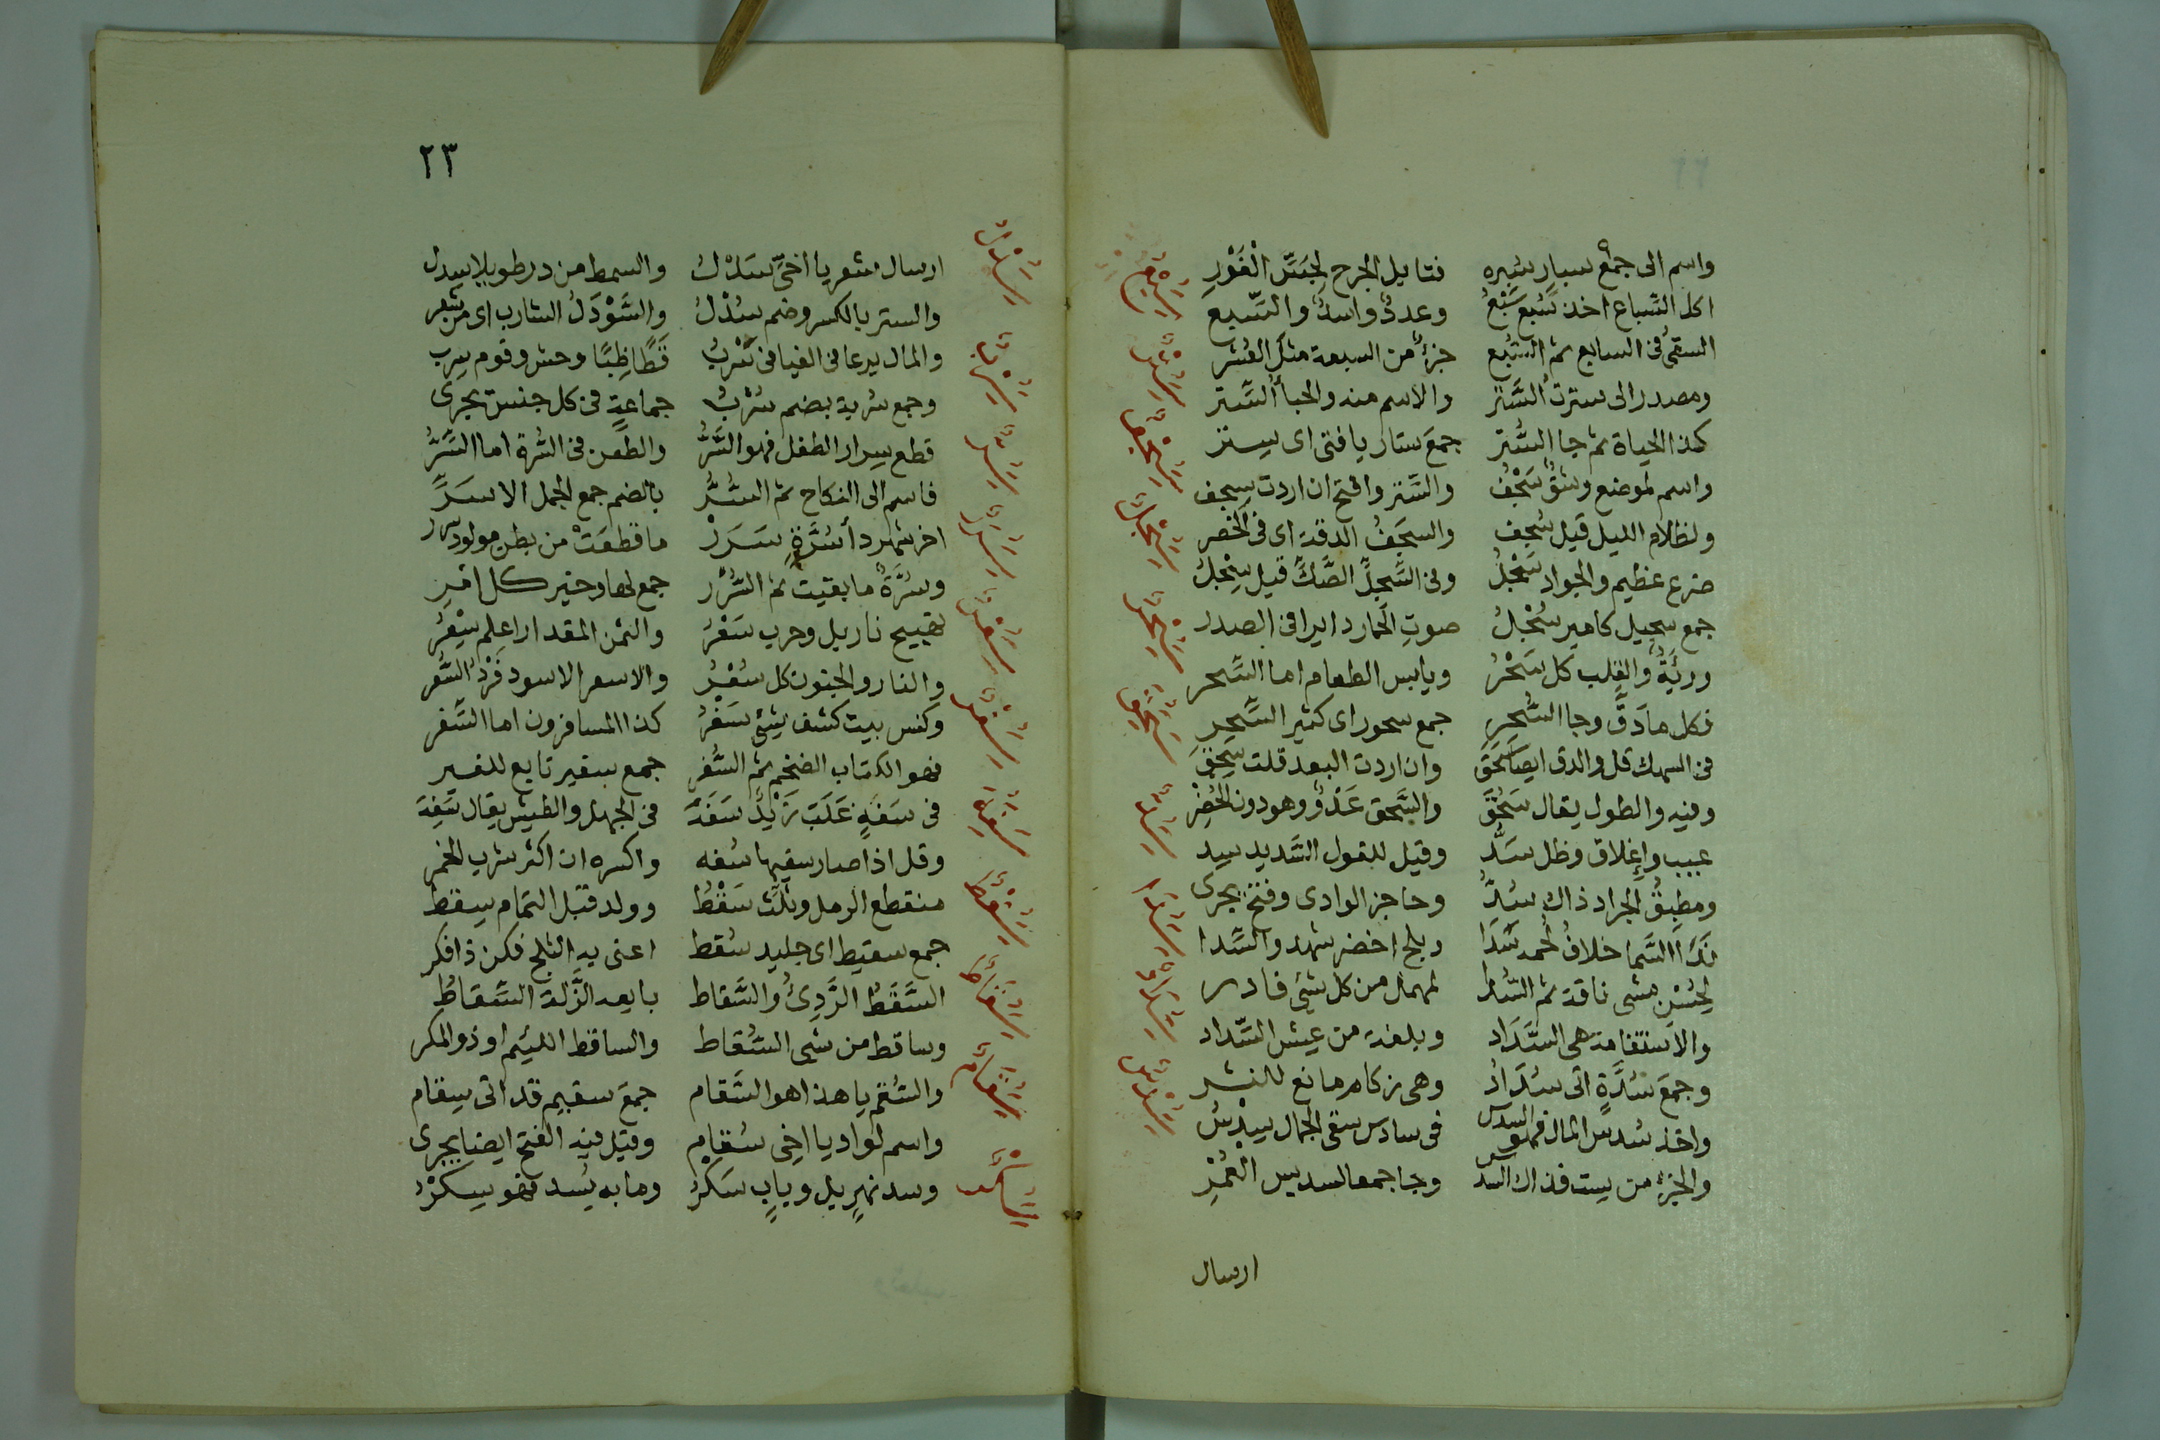 واسم الى جمع سبار سُبره فتايل الجرح لجَسِّ الْغَوْرِ
اكل السّباع اخذ سُبع سَبْعُ وعددٌ واسدٌ والسّبع
السقىُ فى السابع ثم السُّبع جزءٌ من السبعة مثل العُشر
ومصدر الى سترت السَّتر والاسم منه والخبأ السِّتر
كذا الحياة ثم جا السُّتر جمعَ ستار يا فتى اى سِتر
واسم لموضع وشقٌ سَجْفُ والسَّتر وافتح ان اردت سِجف
ولظلام الليل قيل سُجف والسجَفُ الدقة اى فى الخصر
ضرع عظيم والجواد سَجْلُ وفى السَّجلِّ الصَّكِّ قيل سِجْلُ
جمع سجيل كامير سُجْلُ صوتِ الحمار دايرا فى الصدر
وريَةٌ والقلب كل سَحْرُ ويابس الطعام اما السِّحر
فكل ما دَقَّ وجا السُّحرِ جمع سحور اى كثير السِّحرِ
فى السهك قل والدق ايضا سَحَقَ وان اردت البعد قلت سِحِقَ
وفيه والطول يقال سَحُقَ والسَّحق عَدْوٌ وهو دون الحُضْرِ
عيب وإغلاق وظل سَدُّ وقيل للقول السَّديد سِد
ومطبِقُ الجراد ذاك سُدُّ وحاجز الوادى وفتح يجرى
نَدَا السَّما خلافُ لُحمه سَدَا وبلح اخضر شهد والسِّدا
لحُسْنِ مشى ناقة ثم السُّدا لمهمل من كل شئ فادر
والاستقامة هى السَّدَاد وبلغة من عيش السِّداد
وجمعَ سُدَّةٍ اتى سُدَادُ وهى زكام مانع للنشر
واخذ سُدسِ المال فهو السدس فى سادس سقى الجمال سِدْسُ
والجزء من ست فذاك السدس وجا جمعا لسديس العُمْرِ
ارسال
سبع
ستر
سجف
سجل
سحر
سحق
سد
سدا
سداد
سدس
٢٣
ارسال شعر يا اخىَّ سَدْلُ والسمط من در طويلا سِدل
والستر بالكسر وضم سُدْلُ والسَّوْدَلُ الشارب اى من شعر
والمال يرعا فى الفيافى سَرْبُ قَطًا ظِبًا وحش وقوم سِرب
وجمع سُربة بضم سُرْبُ جماعةٍ فى كل جنس يجرى
قطع سِرار الطفل فهو السَّرُّ والطعن فى السُّرة اما السِّرُّ
فاسم الى النكاح ثم السُّرُّ بالضم جمع الجمل الاسَرِّ
اخر شهر دأ سُرَّةٍ سَرَرْ ما قطعَتْ من بطن مولود سِرر
وسُرَّةٌ ما بقيت ثم السُّرَر جمع لها وخير كل امرِ
تهييج نار بل وحرب سَعْرُ والثمن المقدار اعلم سِعْرُ
والنار والجنون كل سُعْرُ والاسعر الاسود فَرْدُ السُّعر
وكنس بيت كشف شئٍ سَفْرُ كذا المسافرون اما السِّفر
فهو الكتاب الضخم ثم السُّفر جمع سفير تابع للغير
فى سَفَهٍ غَلَبَ زَيْدٌ سَفَهَ فى الجهل والطيش يقال سَفِهَ
وقل اذا صار سفيها سُفه واكسره ان اكثر شرب الخمر
منقطع الرمل وثلِّث سَقْطُ وولد قبل التمام سِقط
جمع سقيط اى جليد سُقط اعنى به الثلج فكن ذا فكر
السَّقَطُ الرَّدِئُ والسَّقاط بايعه الزَّلة السِّقاطُ
وساقط من شى السُّقاط والساقط اللئيم او ذو المكر
والسُقم يا هذا هو السَّقام جمعَ سقيم قد اتى سِقام
واسم لواد يا اخى سُقام وقيل فيه الفتح ايضا يجرى
وسد نهرٍ بل وبابٍ سَكْرُ وما به يُسد فهو سِكْرُ
سدل
سرب
سر
سرر
سعر
سفر
سفه
سقط
سقاط
سقام
سكر